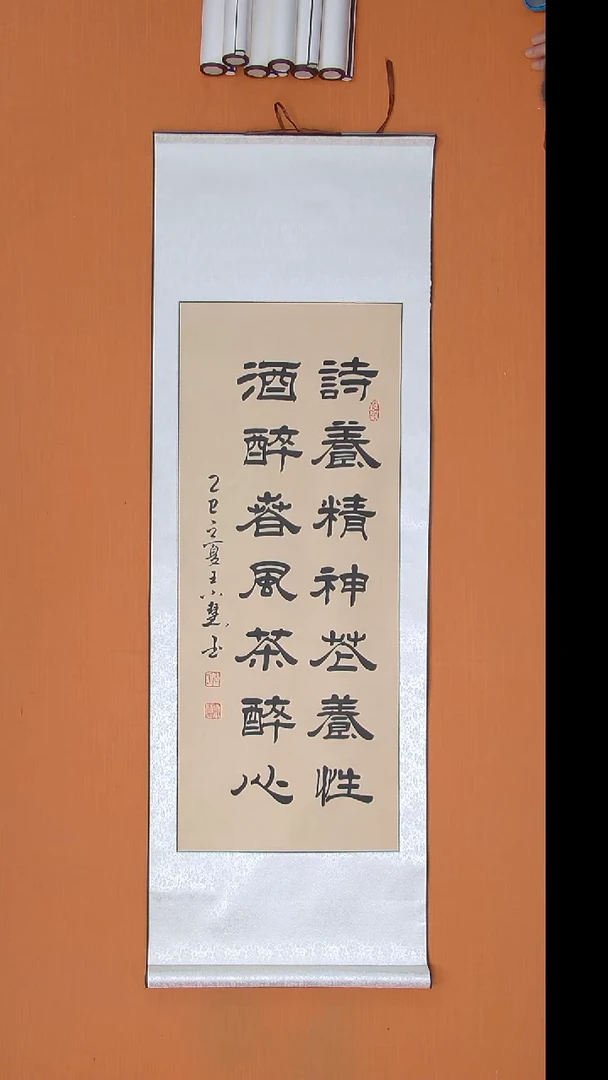 詩養精神花養性
酒醉春風茶醉心
乙巳之夏王小慧書